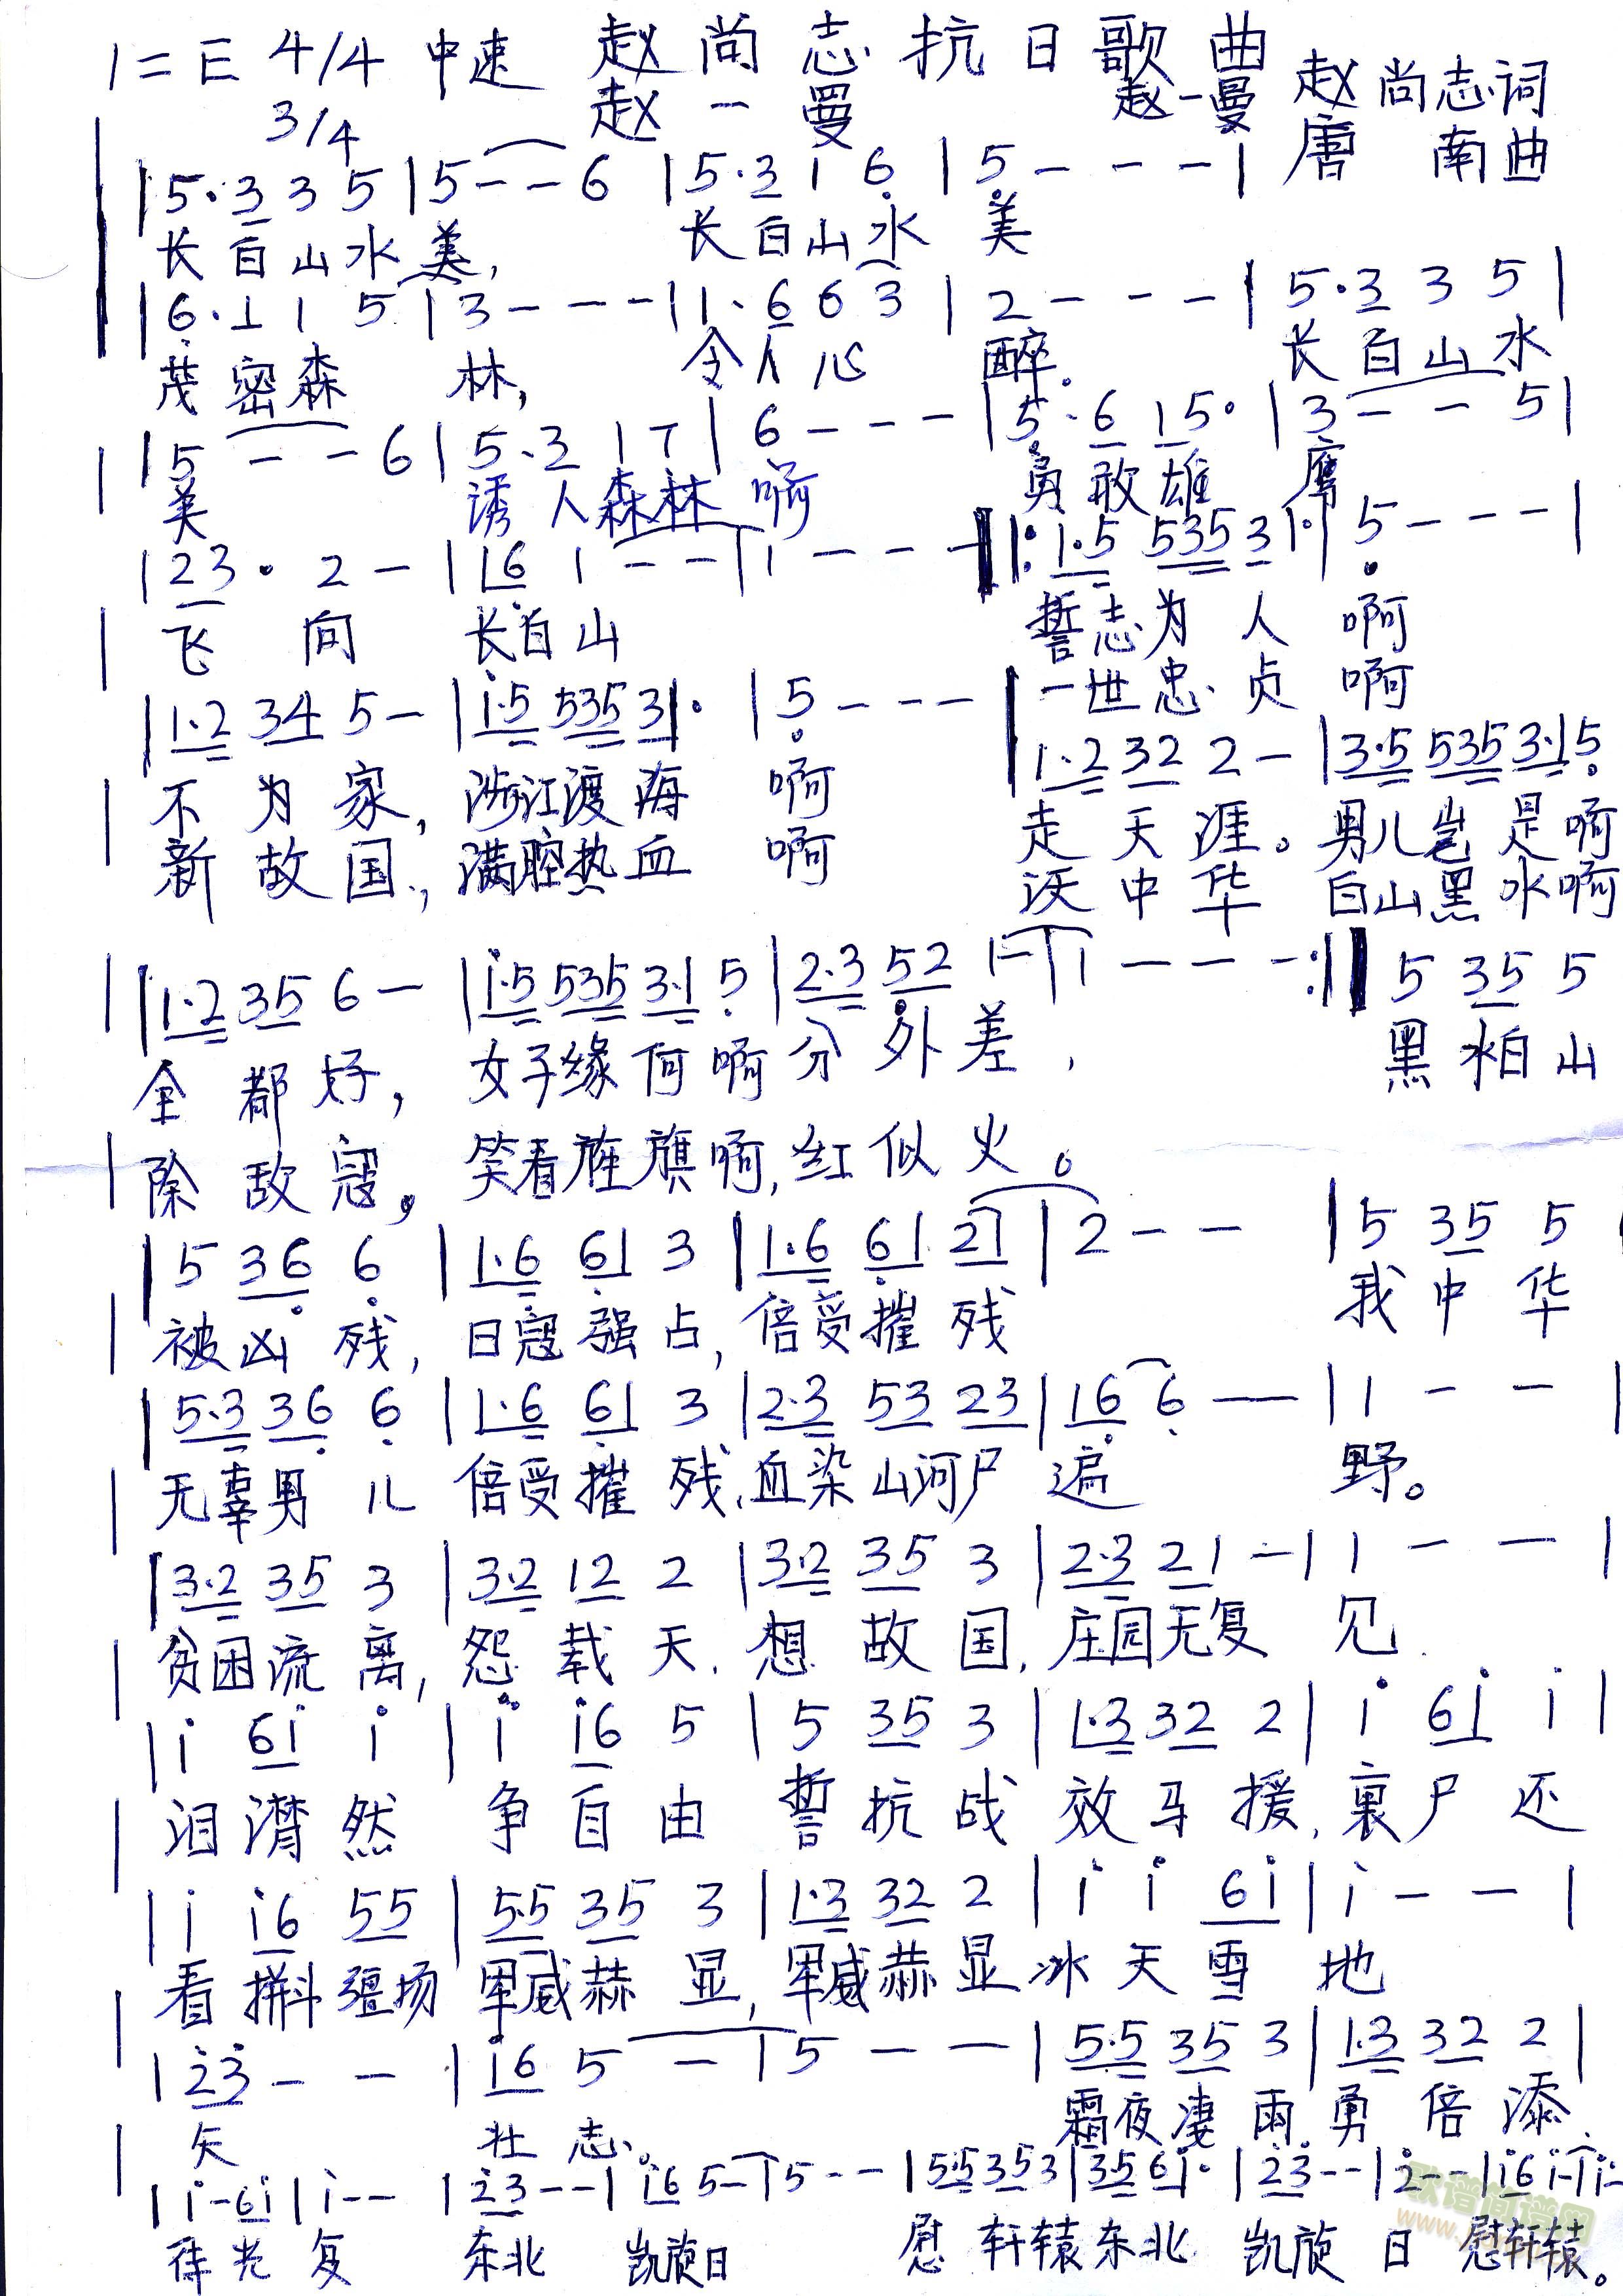 1=E 4/4 中速 赵尚志抗日歌曲
3/4 赵一曼 赵一曼 赵尚志词
唐南曲
|5·3 3 5|5--6|5·3 1 6|5---|
长白山水美, 长白山水美
|6·1 1 5|3---|1·6 6 3|2---|5·3 3 5|
茂密森林, 令人心醉. 长白山水
|5--6|5·3 1 7|6---|5·6 1 5·|3--5|
美 诱人森林啊 勇敢雄鹰
|23·2-|16 1--|1---||:1·5 535 31·|5---|
飞向 长白山 誓志为人啊
一世忠贞啊
|1·2 34 5-|i·5 535 31·|5---|1·2 32 2-|3·5 535 3·1 5
不为家, 涉江渡海啊 走天涯。男儿岂是啊
新故国, 满腔热血啊 沃中华 白山黑水啊
|1·2 35 6-|i·5 535 3·1 5|2·3 52 1-|1---:||5 35 5
全都好, 女子缘何啊 分外差, 黑水白山
除敌寇, 笑看旌旗啊, 红似火。
|5 36 6|1·6 61 3|1·6 61 21|2--|5 35 5|
被凶残, 日寇强占, 倍受摧残 我中华
|5·3 36 6|1·6 61 3|2·3 53 23|16 6-|1--|
无辜男儿 倍受摧残, 血染山河尸遍 野。
|3·2 35 3|3·2 12 2|3·2 35 3|2·3 21-|1--|
贫困流离, 怨载天. 想故国, 庄园无复见
|i 6i i|i i6 5|5 35 3|1·3 32 2|i 6i i|
泪潸然 争自由 誓抗战 效马援, 裹尸还
|i i6 55|5·5 35 3|1·3 32 2|i i 6i|i--|
看拚斗疆场 军威赫显, 军威赫显 冰天雪地
|23--|i6 5-|5--|5·5 35 3|1·3 32 2|
矢 壮志。 霜夜凄雨 勇倍添
|i-6i|i--|23--|i6 5-|5--|5·5 35 3|35 6i·|23--|2--|i6 i-|i-
待光复 东北 凯旋日 慰轩辕东北 凯旋日 慰轩辕。
歌谱简谱网